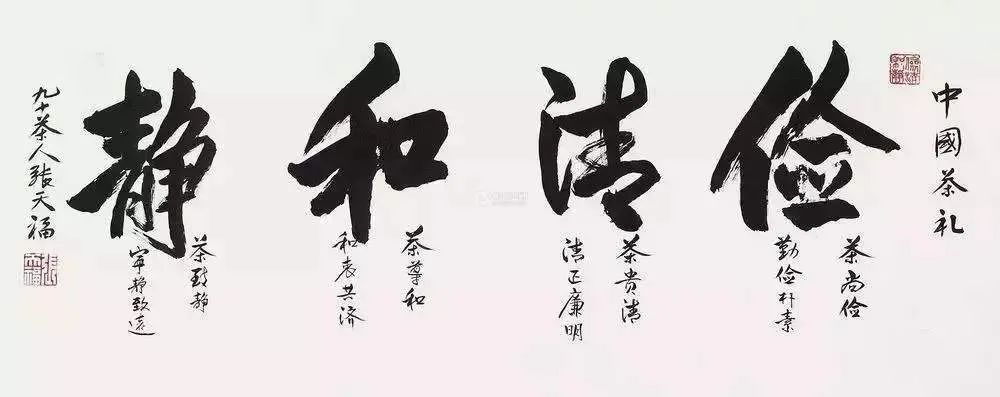 中國茶礼
俭
茶尚俭
勤俭朴素
清
茶贵清
清正廉明
和
茶导和
和衷共济
静
茶致静
宁静致远
九十茶人張天福